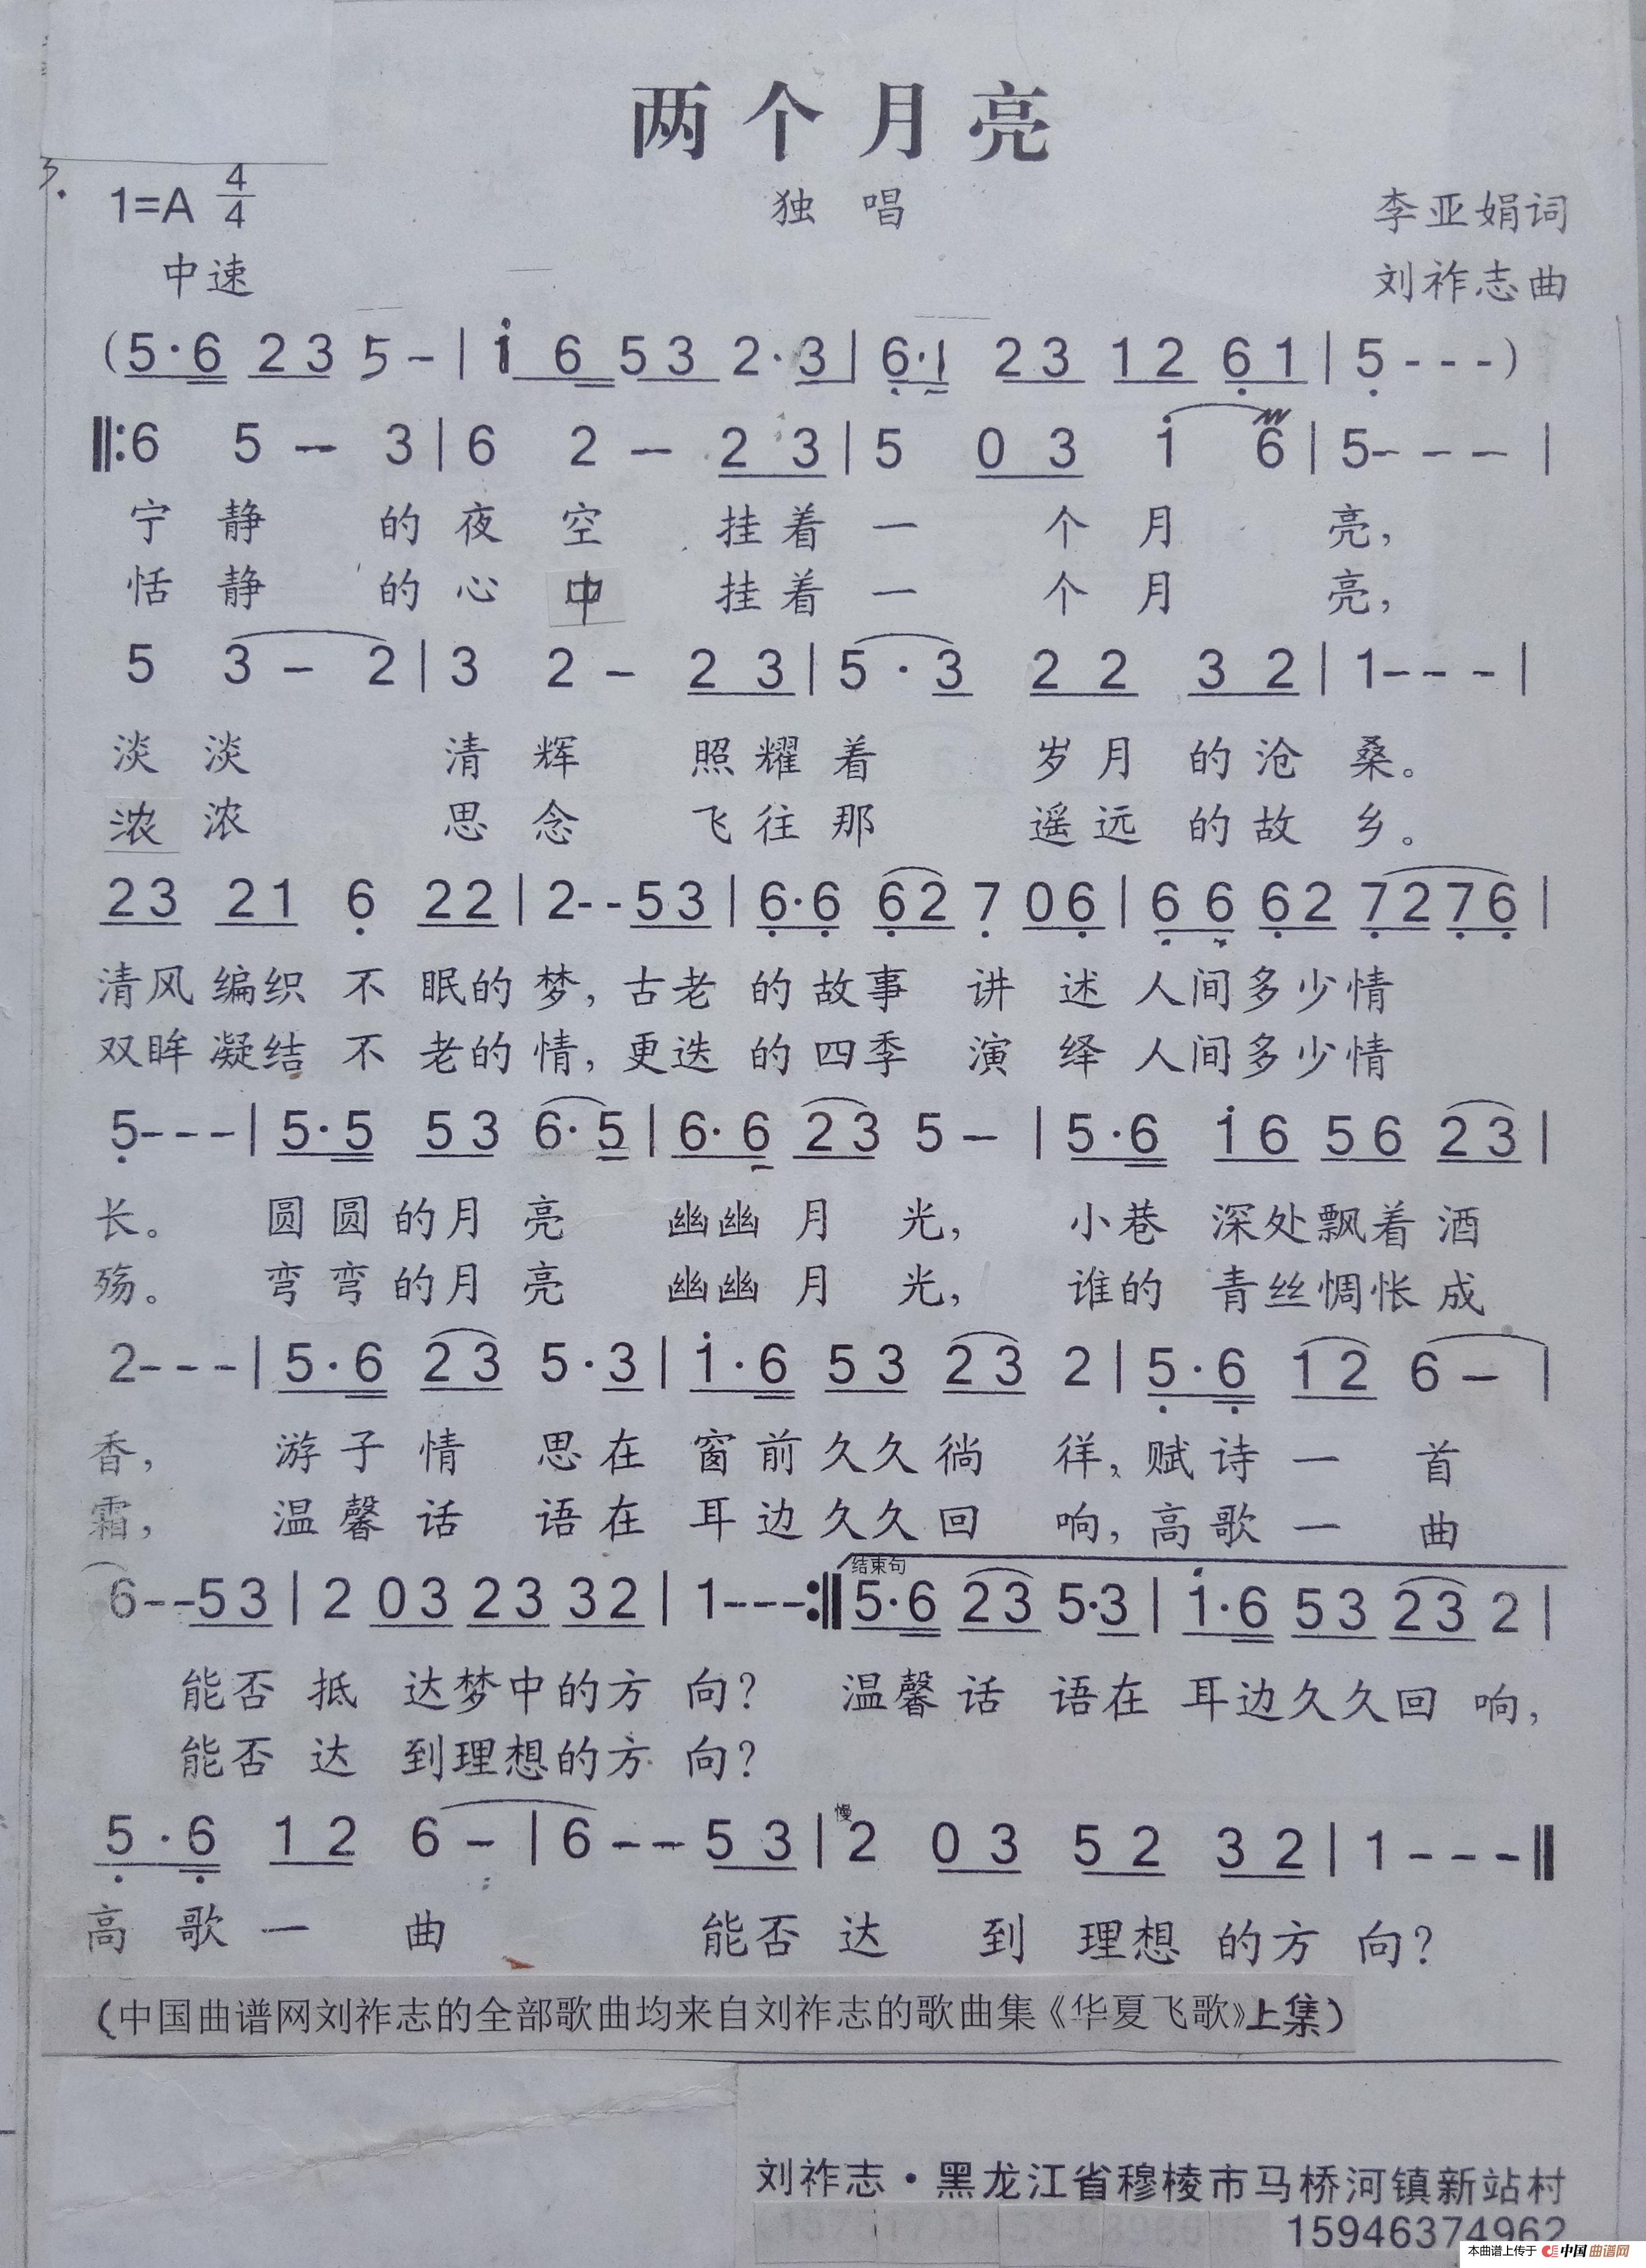 两个月亮
1=A 4/4
独唱
李亚娟词
中速
刘祚志曲
(5·6 23 5 - | i 6 53 2·3 | 6·1 23 12 61 | 5 - - - )
‖:6 5 - 3 | 6 2 - 2 3 | 5 0 3 i 6 | 5 - - - |
宁静 的夜空 挂着一 个月 亮,
恬静 的心中 挂着一 个月 亮,
5 3 - 2 | 3 2 - 2 3 | 5·3 2 2 3 2 | 1 - - - |
淡淡 清辉 照耀着 岁月的沧桑。
浓浓 思念 飞往那 遥远的故乡。
23 21 6 22 | 2 - - 53 | 6·6 62 7 06 | 6 6 62 7276 |
清风编织不眠的梦,古老的故事 讲述人间多少情
双眸凝结不老的情,更迭的四季 演绎人间多少情
5 - - - | 5·5 53 6·5 | 6·6 23 5 - | 5·6 i6 56 23 |
长。 圆圆的月亮 幽幽月光, 小巷深处飘着酒
殇。 弯弯的月亮 幽幽月光, 谁的青丝惆怅成
2 - - - | 5·6 23 5·3 | i·6 53 23 2 | 5·6 12 6 - |
香, 游子情 思在窗前久久徜 徉、赋诗一 首
霜, 温馨话 语在耳边久久回 响,高歌一 曲
结束句
6 - - 53 | 2 03 23 32 | 1 - - - :‖ 5·6 23 5·3 | i·6 53 23 2 |
能否抵 达梦中的方向? 温馨话 语在耳边久久回 响,
能否达 到理想的方向?
慢
5·6 12 6 - | 6 - - 53 | 2 03 52 32 | 1 - - - ‖
高歌一 曲 能否达 到理想的方向?
(中国曲谱网刘祚志的全部歌曲均来自刘祚志的歌曲集《华夏飞歌》上集)
刘祚志·黑龙江省穆棱市马桥河镇新站村
15946374962
本曲谱上传于 中国曲谱网